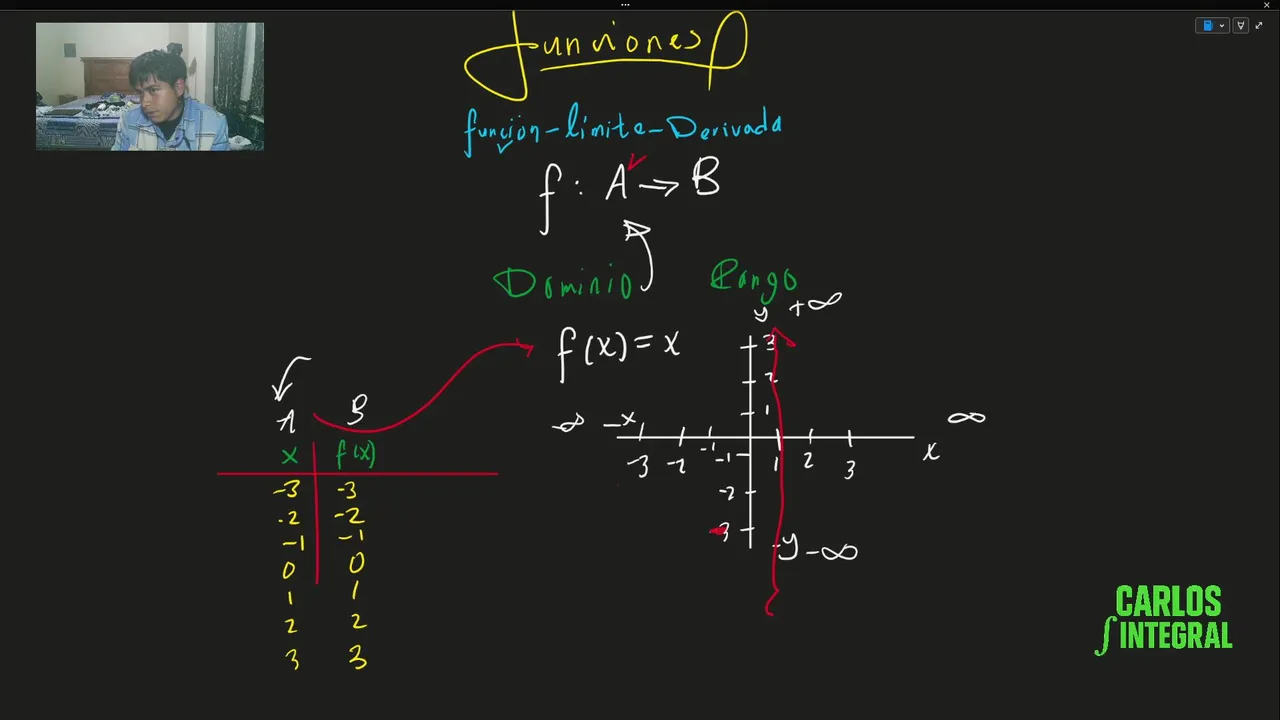 funciones
función-límite-Derivada
f: A → B
Dominio Rango
y +∞
f(x) = x
3
2
1
-∞ -x x ∞
-3 -2 -1 1 2 3
-1
-2
-3
-y -∞
A B
x f(x)
-3 -3
-2 -2
-1 -1
0 0
1 1
2 2
3 3
CARLOS
∫ INTEGRAL